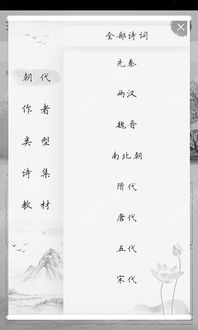 全部诗词
朝代
作者
类型
诗集
教材
先秦
两汉
魏晋
南北朝
隋代
唐代
五代
宋代